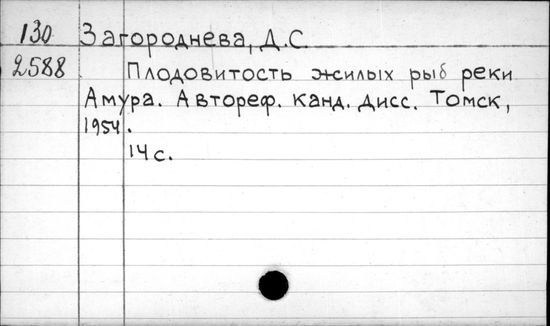 130 Загороднева, Д.С.
2588 Плодовитость жилых рыб реки
Амура. Автореф. канд. дисс. Томск,
1954.
14 с.